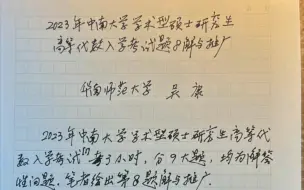 2023年中南大学学术型硕士研究生
高等代数入学考试题8解与推广
华南师范大学 吴康
2023年中南大学学术型硕士研究生高等代
数入学考试[1]每3小时,分9大题,均为解答
性问题.笔者给出第8题解与推广.